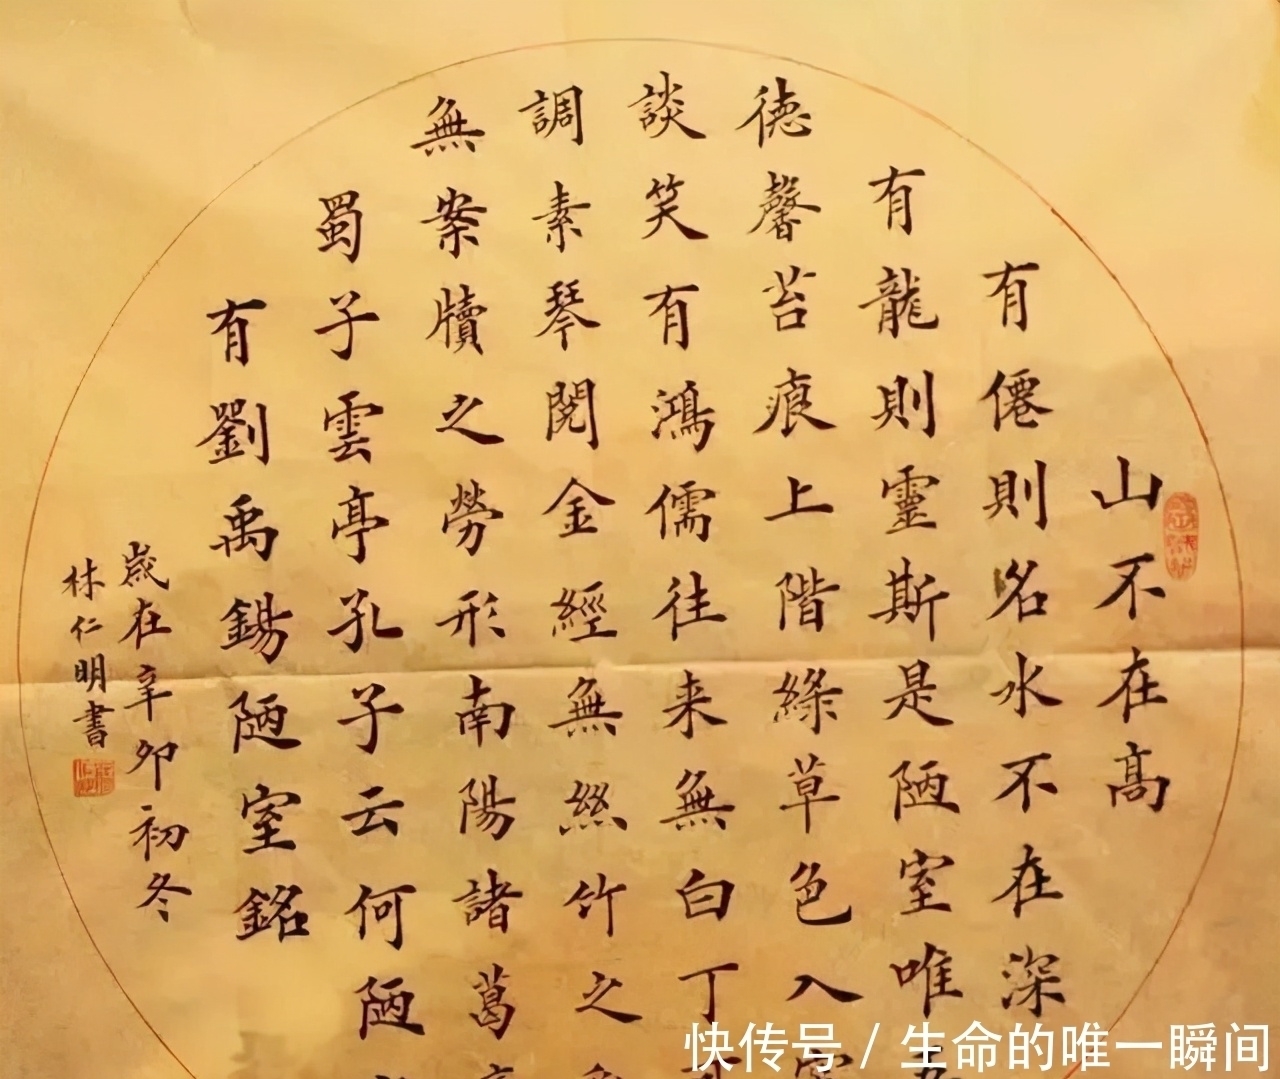 山不在高
有僊則名水不在深
有龍則靈斯是陋室唯吾
德馨苔痕上階綠草色入
談笑有鴻儒往来無白丁可
調素琴閱金經無絲竹之
無案牘之勞形南陽諸葛
蜀子雲亭孔子云何陋
有劉禹錫陋室銘
歲在辛卯初冬
林仁明書
快传号 / 生命的唯一瞬间